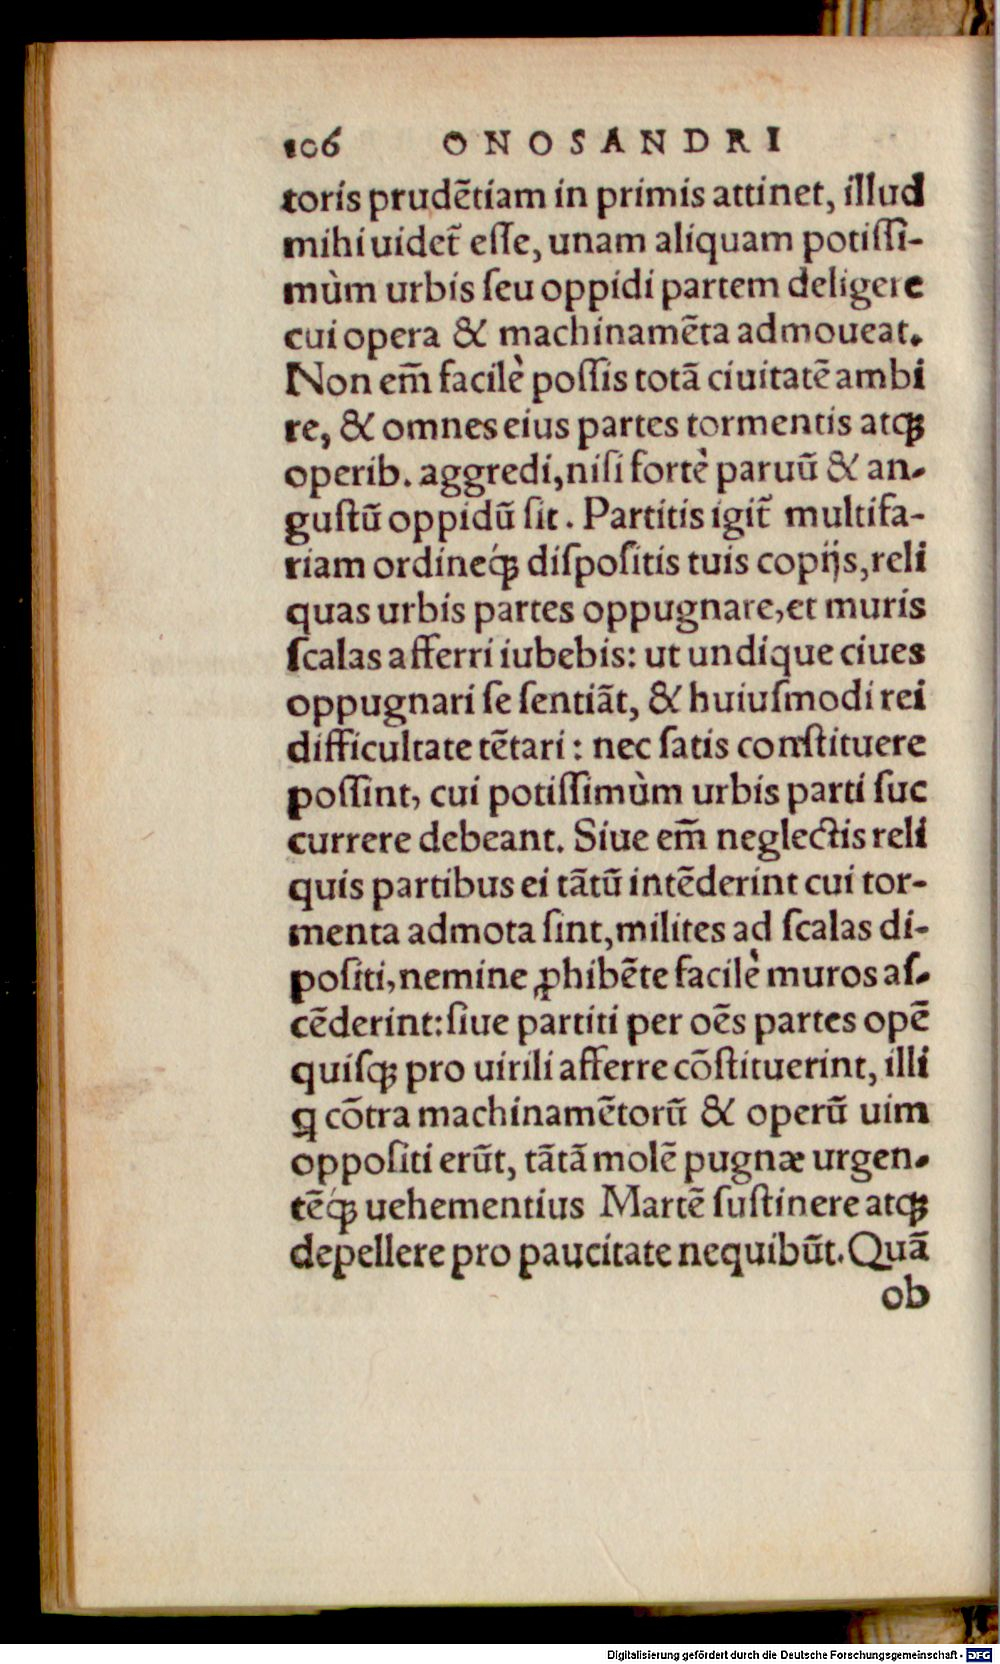 106 ONOSANDRI
toris prudẽtiam in primis attinet, illud
mihi uidet̃ eſſe, unam aliquam potiſſi-
mùm urbis ſeu oppidi partem deligere
cui opera & machinamẽta admoueat.
Non em̃ facilè poſſis totã ciuitatẽ ambi
re, & omnes eius partes tormentis atqꝫ
operib. aggredi, niſi fortè paruũ & an-
guſtũ oppidũ ſit. Partitis igit̃ multifa-
riam ordineq́ꝫ diſpoſitis tuis copijs, reli
quas urbis partes oppugnare, et muris
ſcalas afferri iubebis: ut undique ciues
oppugnari ſe ſentiãt, & huiuſmodi rei
difficultate tẽtari: nec ſatis conſtituere
poſſint, cui potiſſimùm urbis parti ſuc
currere debeant. Siue em̃ neglectis reli
quis partibus ei tãtũ intẽderint cui tor-
menta admota ſint, milites ad ſcalas di-
poſiti, nemine ꝓhibẽte facilè muros aſ-
cẽderint: ſiue partiti per oẽs partes opẽ
quiſqꝫ pro uirili afferre cõſtituerint, illi
ꝗ cõtra machinamẽtorũ & operũ uim
oppoſiti erũt, tãtã molẽ pugnæ urgen-
tẽq́ꝫ uehementius Martẽ ſuſtinere atqꝫ
depellere pro paucitate nequibũt. Quã
ob
Digitalisierung gefördert durch die Deutsche Forschungsgemeinschaft - DFG